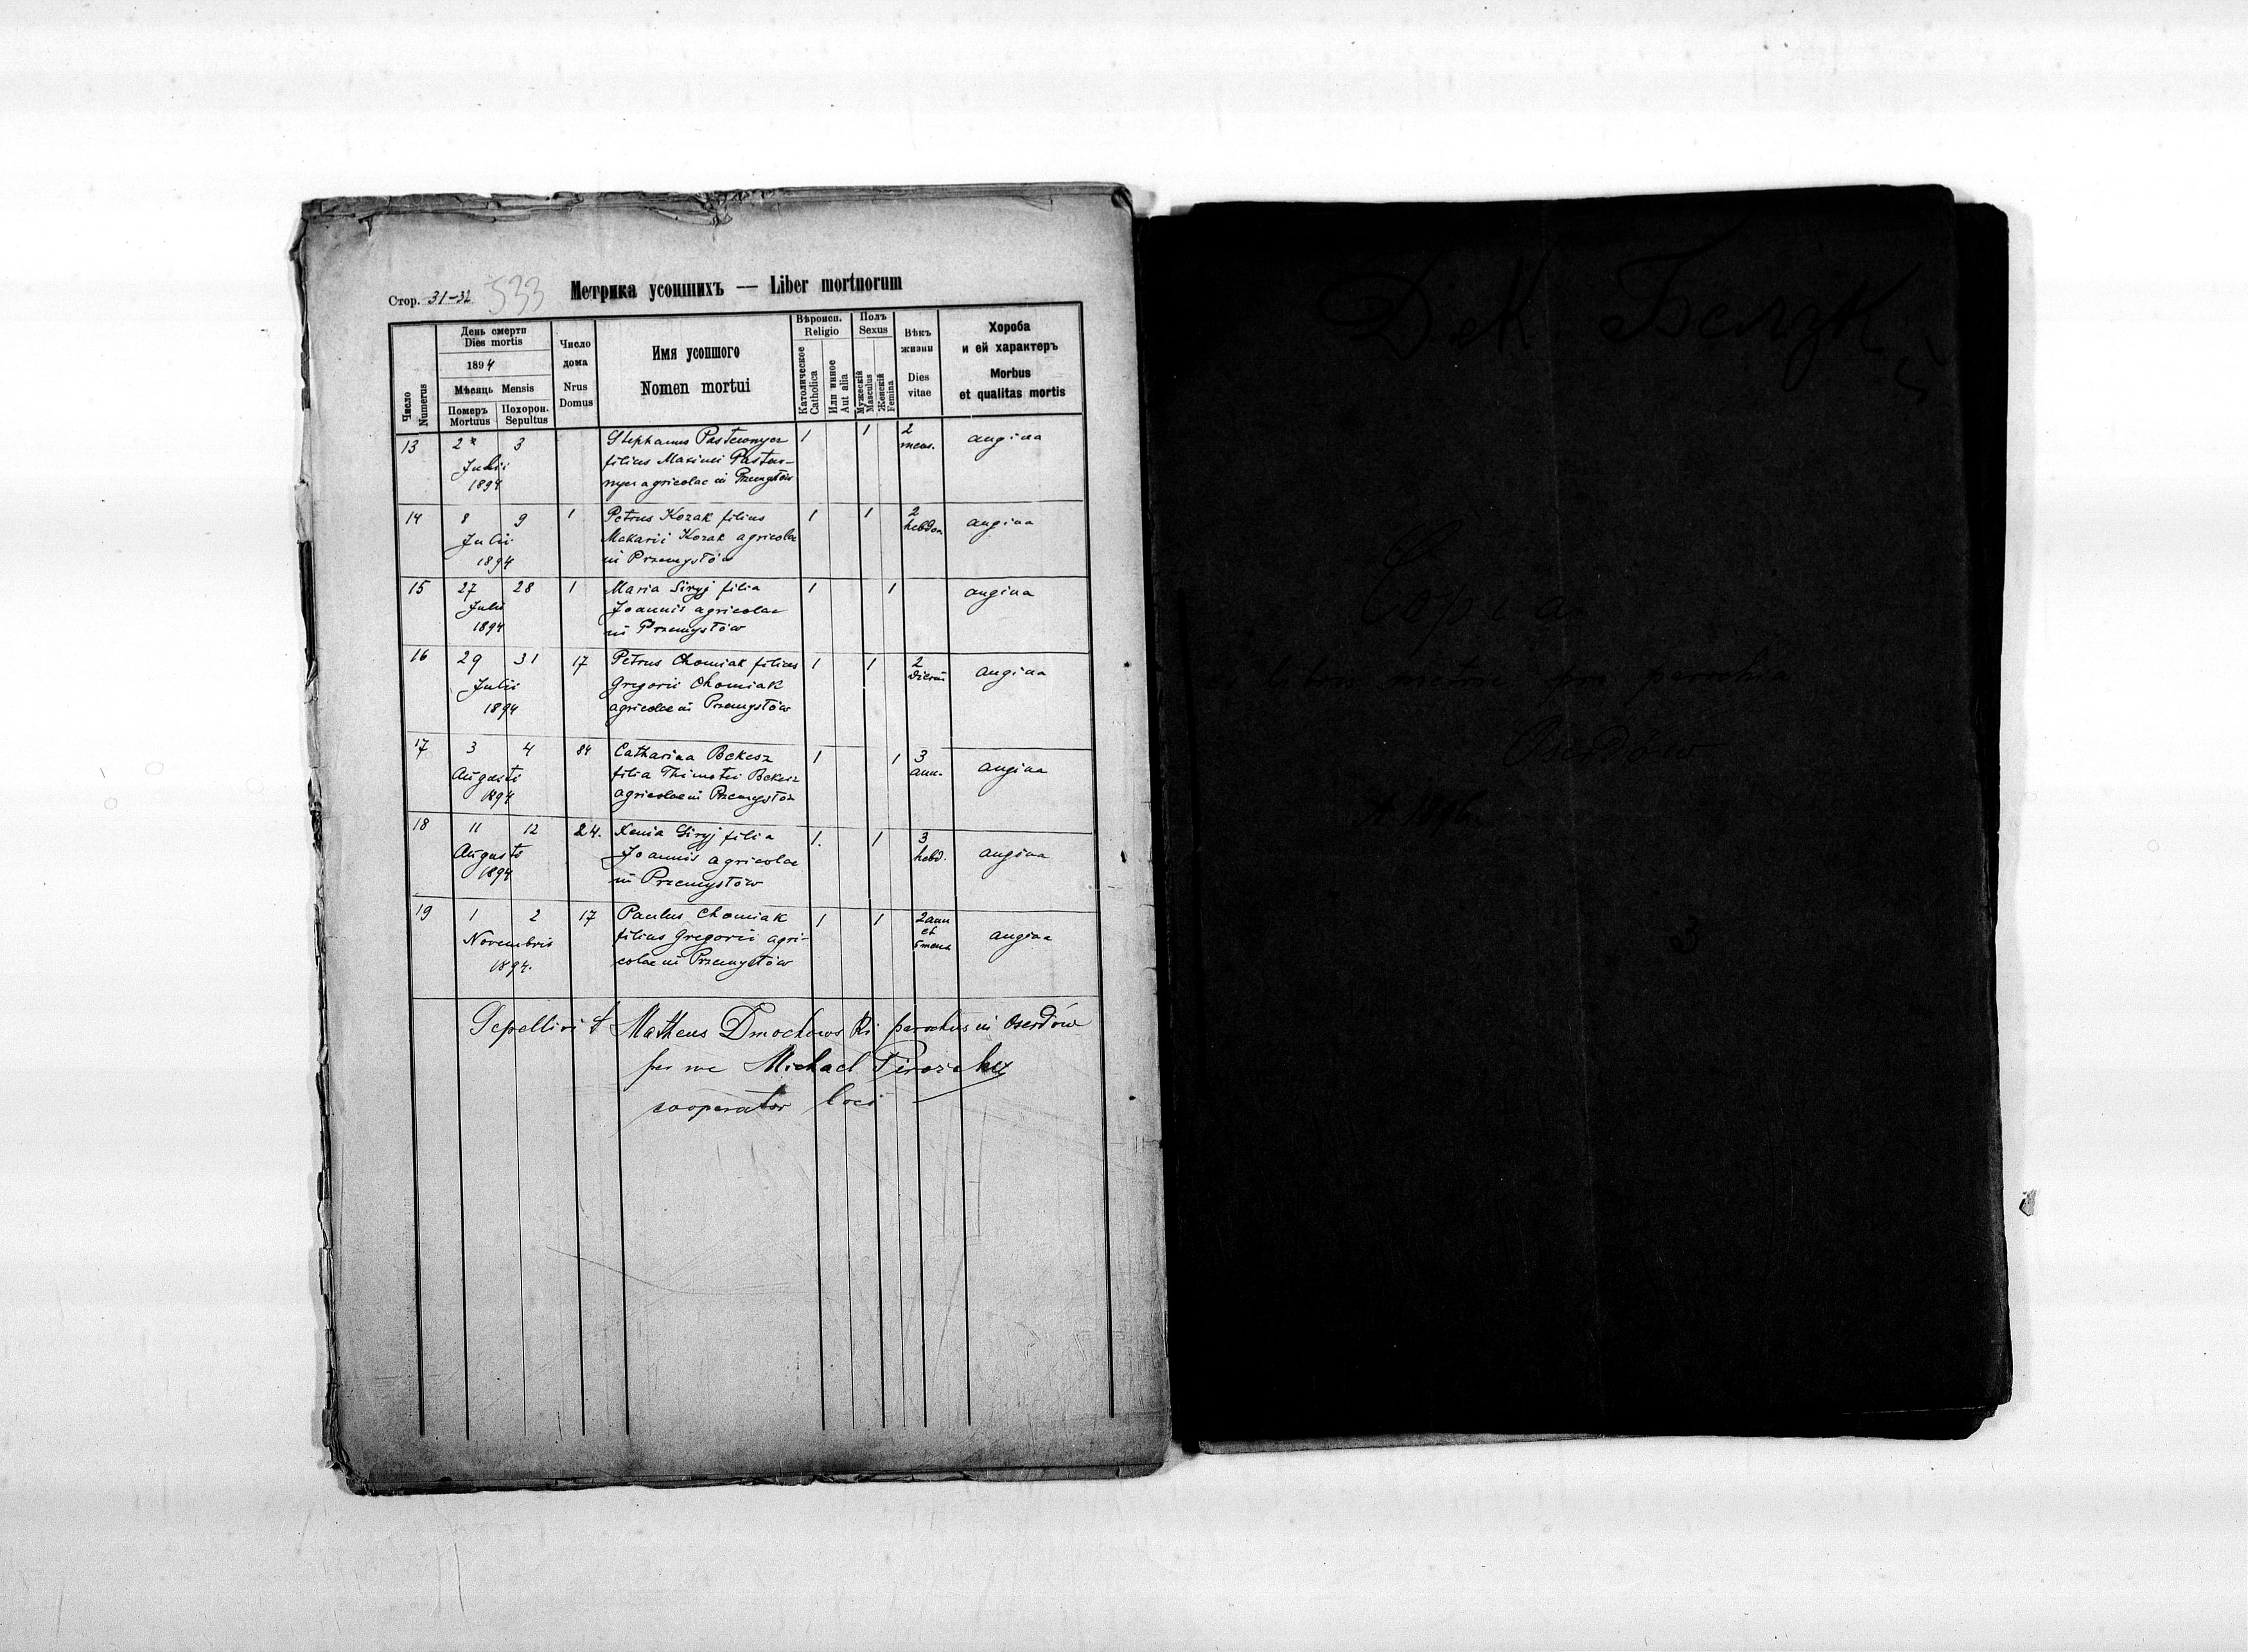 Стор. 31-32 533 Метрика усопшихъ — Liber mortuorum
Число Numerus
День смерти
Dies mortis
1894
Мѣсяць Mensis
Померъ Mortuus
Похорон. Sepultus
Число дома
Nrus Domus
Имя усопшого
Nomen mortui
Вѣроисп.
Religio
Католическое Catholica
Или инное Aut alia
Полъ
Sexus
Мужескій Masculus
Женскій Femina
Вѣкъ жизни
Dies vitae
Хороба
и ей характеръ
Morbus
et qualitas mortis
13 2 3 Stephanus 1 1 2 angina
Julii filius Maximi mens.
1894 agricolae in Przemysłów
14 8 9 1 Petrus Kozak filius 1 1 2 angina
Julii Makarii Kozak agricolae hebdom.
1894 in Przemysłów
15 27 28 1 Maria Siryj filia 1 1 angina
Julii Joannis agricolae
1894 in Przemysłów
16 29 31 17 Petrus Chomiak filius 1 1 2 angina
Julii Gregorii Chomiak dierum
1894 agricolae in Przemysłów
17 3 4 84 Catharina Bekesz 1 1 3 angina
Augusti filia Thimotei Bekesz ann.
1894 agricolae in Przemysłów
18 11 12 24. Xenia Siryj filia 1. 1 3 angina
Augusti Joannis agricolae hebd.
1894 in Przemysłów
19 1 2 17 Paulus Chomiak 1 1 2 ann
Novembris filius Gregorii agri- et angina
1894. colae in Przemysłów 5 mens
Sepellivit Matheus Dmochowski parochus in Oserdów
per me Michael
cooperator loci
Дек. Белзкій
Copia
libri pro parochia
Oserdów
3